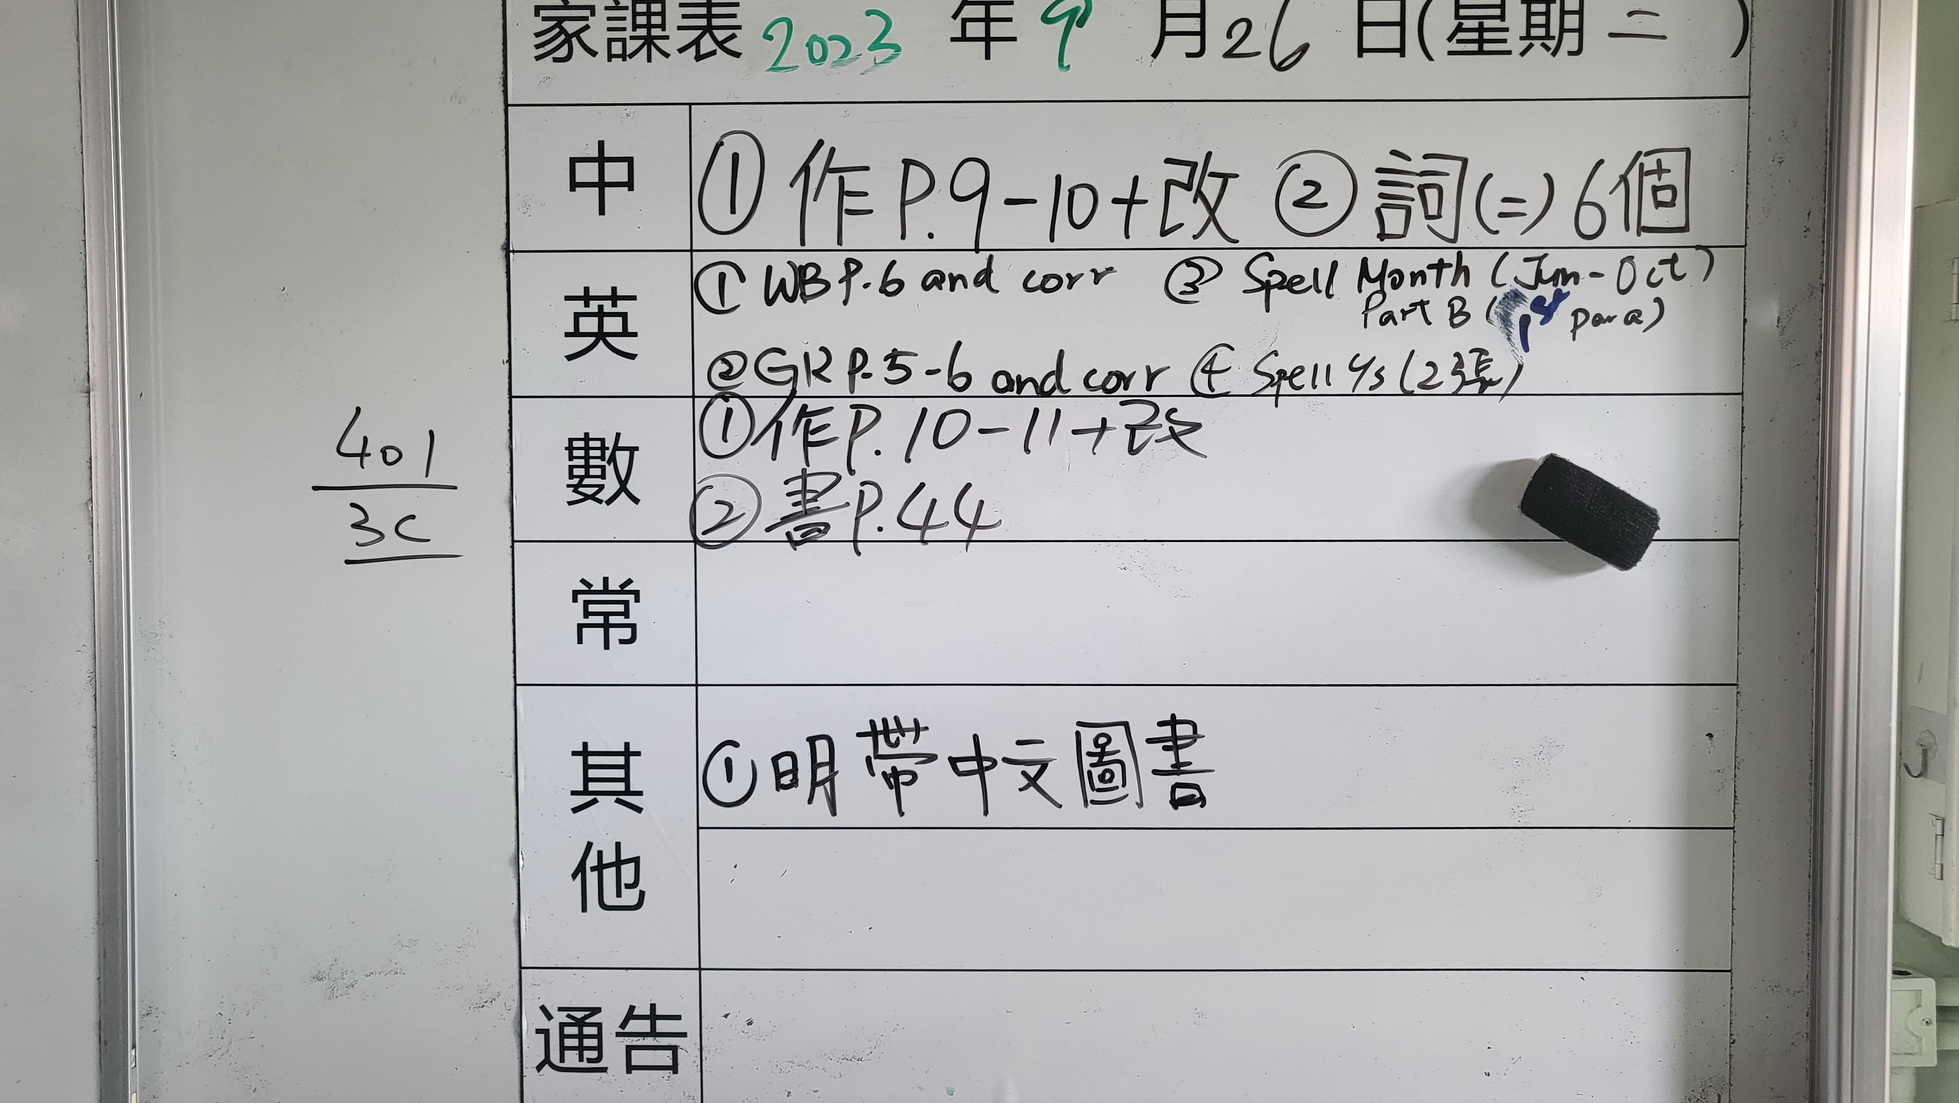 家課表 2023 年 9 月 26 日(星期二)
中 ① 作 P.9-10+改 ② 詞(二) 6個
英 ① WB P.6 and corr ③ Spell Month (Jun-Oct)
Part B (1st para)
② GR P.5-6 and corr ④ Spell (2張)
數 ① 作P.10-11+改
② 書P.44
401
3C
常
其他 ① 明帶中文圖書
通告